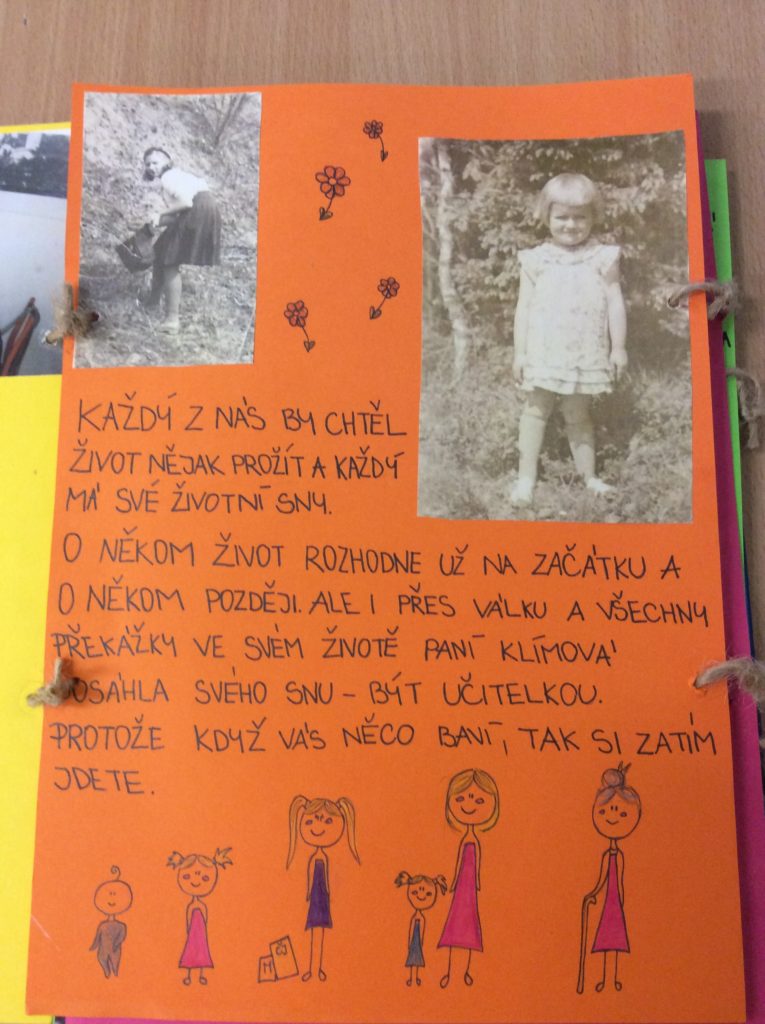 KAŽDÝ Z NÁS BY CHTĚL
ŽIVOT NĚJAK PROŽÍT A KAŽDÝ
MÁ SVÉ ŽIVOTNÍ SNY.
O NĚKOM ŽIVOT ROZHODNE UŽ NA ZAČÁTKU A
O NĚKOM POZDĚJI. ALE I PŘES VÁLKU A VŠECHNY
PŘEKÁŽKY VE SVÉM ŽIVOTĚ PANÍ KLÍMOVÁ
DOSÁHLA SVÉHO SNU - BÝT UČITELKOU.
PROTOŽE KDYŽ VÁS NĚCO BAVÍ, TAK SI ZATÍM
JDETE.